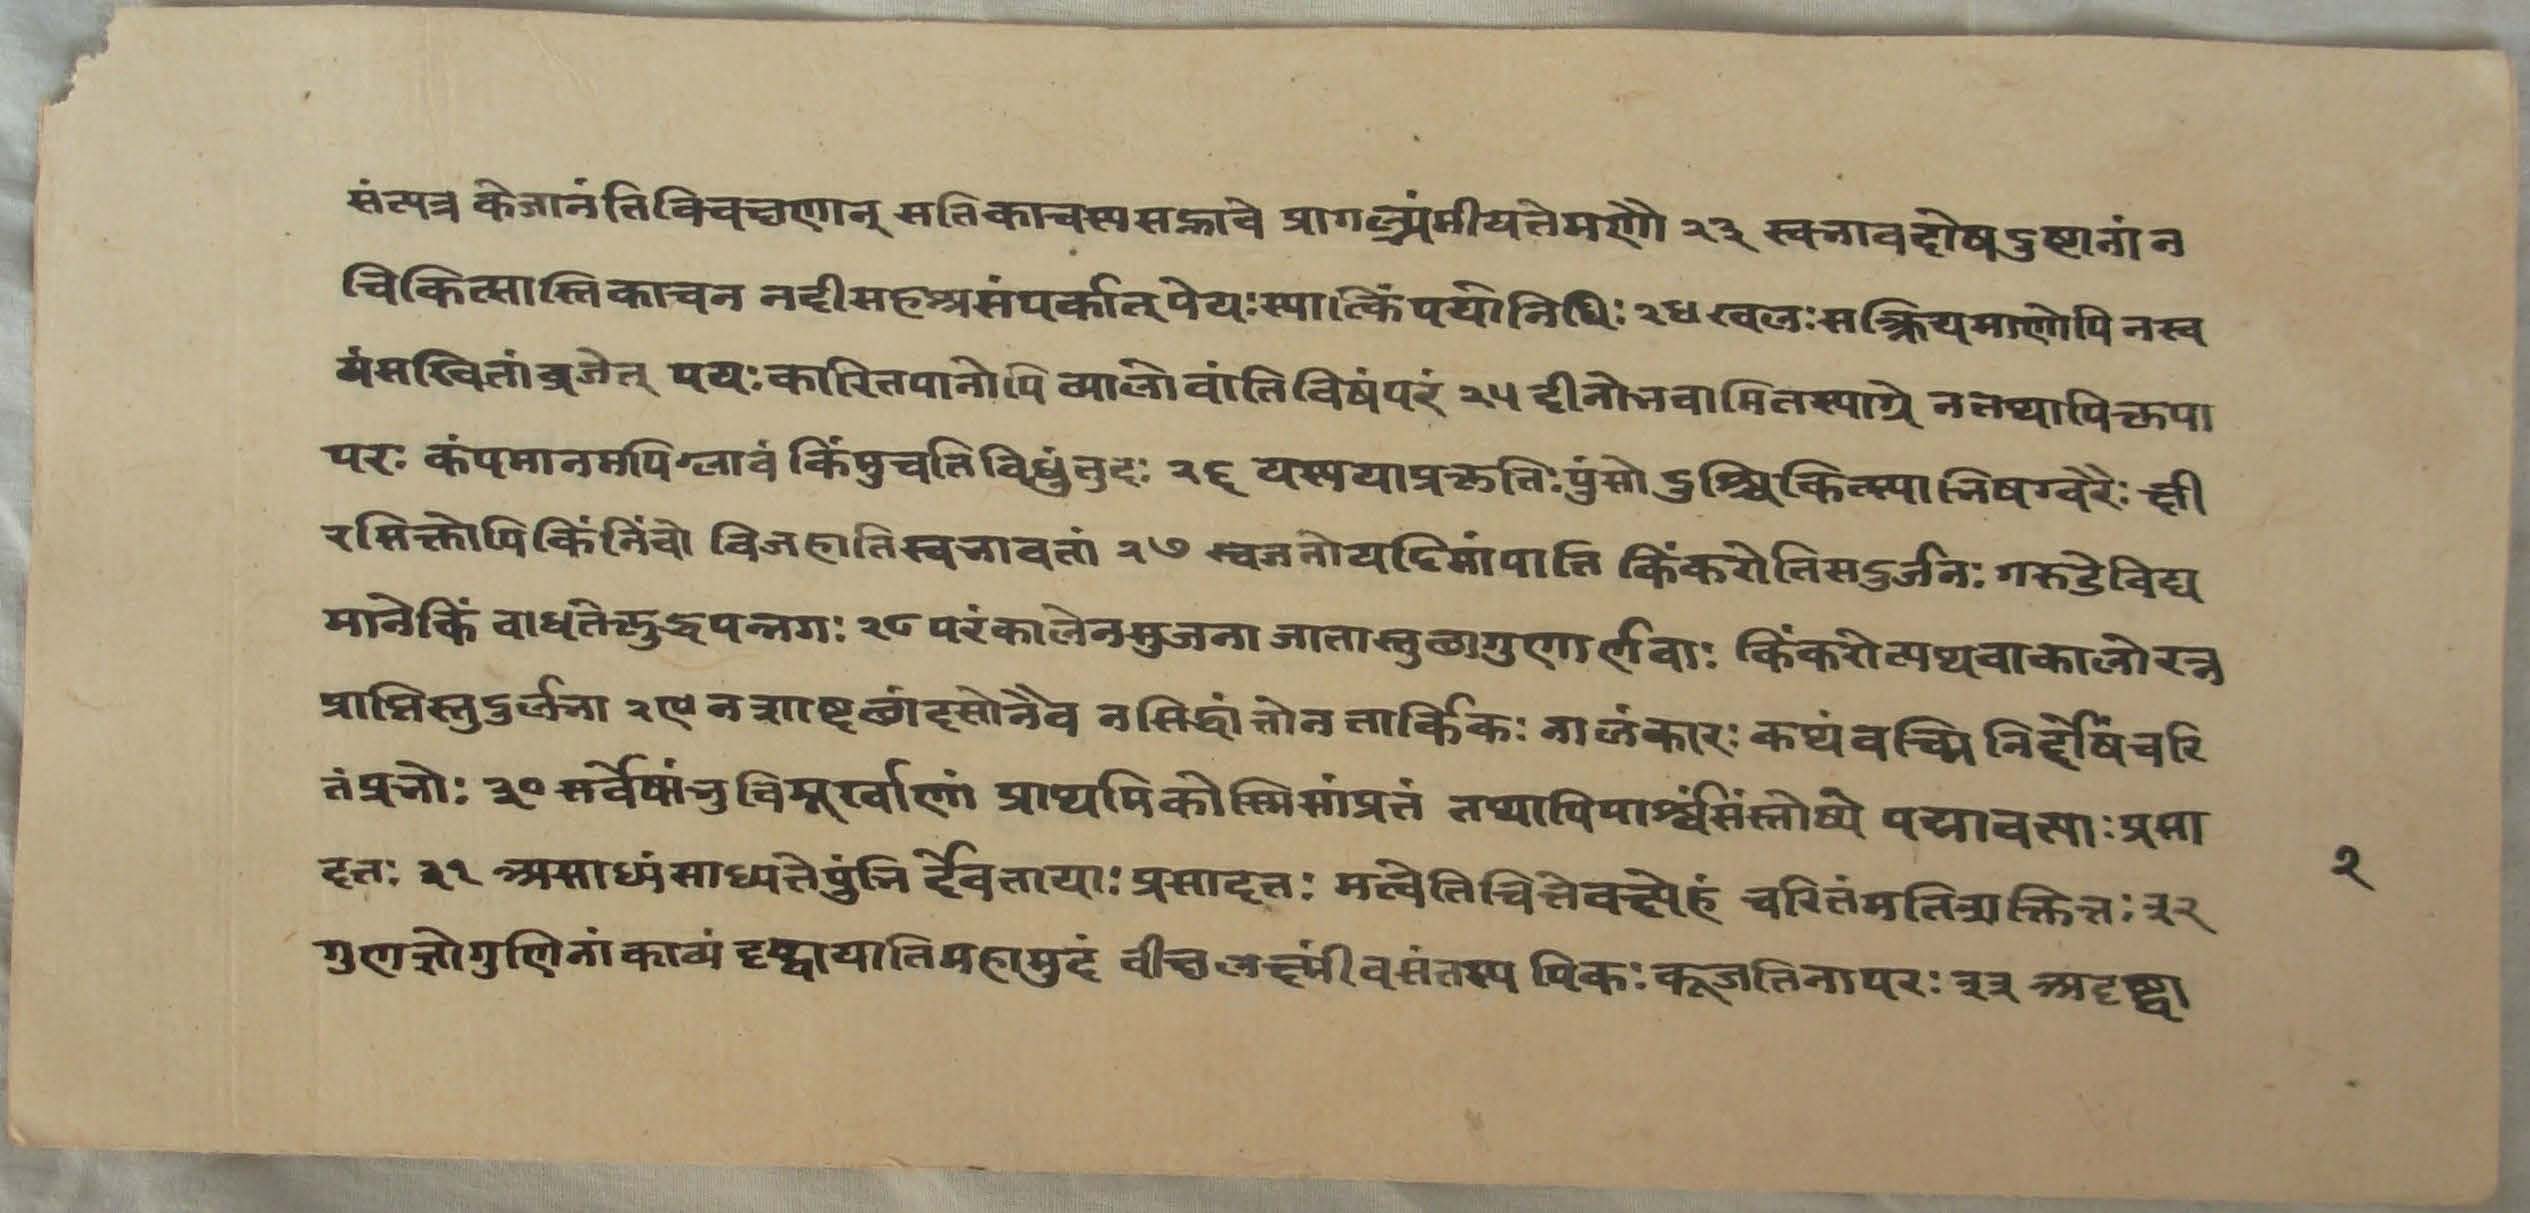 संत्यत्र केजानंतिविचक्षणान् सतिकाचस्यसद्भावे प्रागल्भ्यंमीयतेमणौ २३ स्वभावदोषदुष्टानां न
चिकित्सास्तिकाचन नदीसहश्रसंपर्कात् पेयःस्यात्किंपयोनिधिः २४ खलःसत्क्रियमाणोपि नस्व
यंसखितांव्रजेत् पयःकारितपानोपि व्यालोवांतिविषंपरं २५ दीनोभवामितस्याग्रे नतथापिकृपा
परः कंपमानमपिग्लावं किंमुचतिविधुंतुदः २६ यस्ययाप्रकृतिःपुंसो दुश्चिकित्स्याभिषग्वरैः क्षी
रसिक्तोपिकिंनिंबो विजहातिस्वभावतां २७ स्वजनोयदिमांपाति किंकरोतिसदुर्जनः गरुडेविद्य
मानेकिं वाधतेक्षुद्रपन्नगः २८ परंकालेनसुजना जातास्तुछागुणार्णवाः किंकरोत्यथवाकालोरत्न
प्राप्तिस्तुदुर्लभा २९ नशाष्ट्रछांदसोनैव नसिद्धांतोनतार्किकः नालंकारः कथंवच्मि निर्दोषंचरि
तंप्रभोः ३० सर्वेषांभुविमूर्खाणां प्राथमिकोस्मिसांप्रतं तथापिपार्श्वंसंस्तोष्ये पद्मावत्याःप्रसा
दतः ३१ असाध्यंसाध्यतेपुंभि र्देवतायाःप्रसादतः मत्वेतिचित्तेवक्ष्येहं चरितंमतिशक्तितः ३२
गुणज्ञोगुणिनांकाव्यं दृष्ट्वायातिमहामुदं वीक्षलक्ष्मींवसंतस्य पिकःकूजतिनापरः ३३ अदृष्ट्वा
२